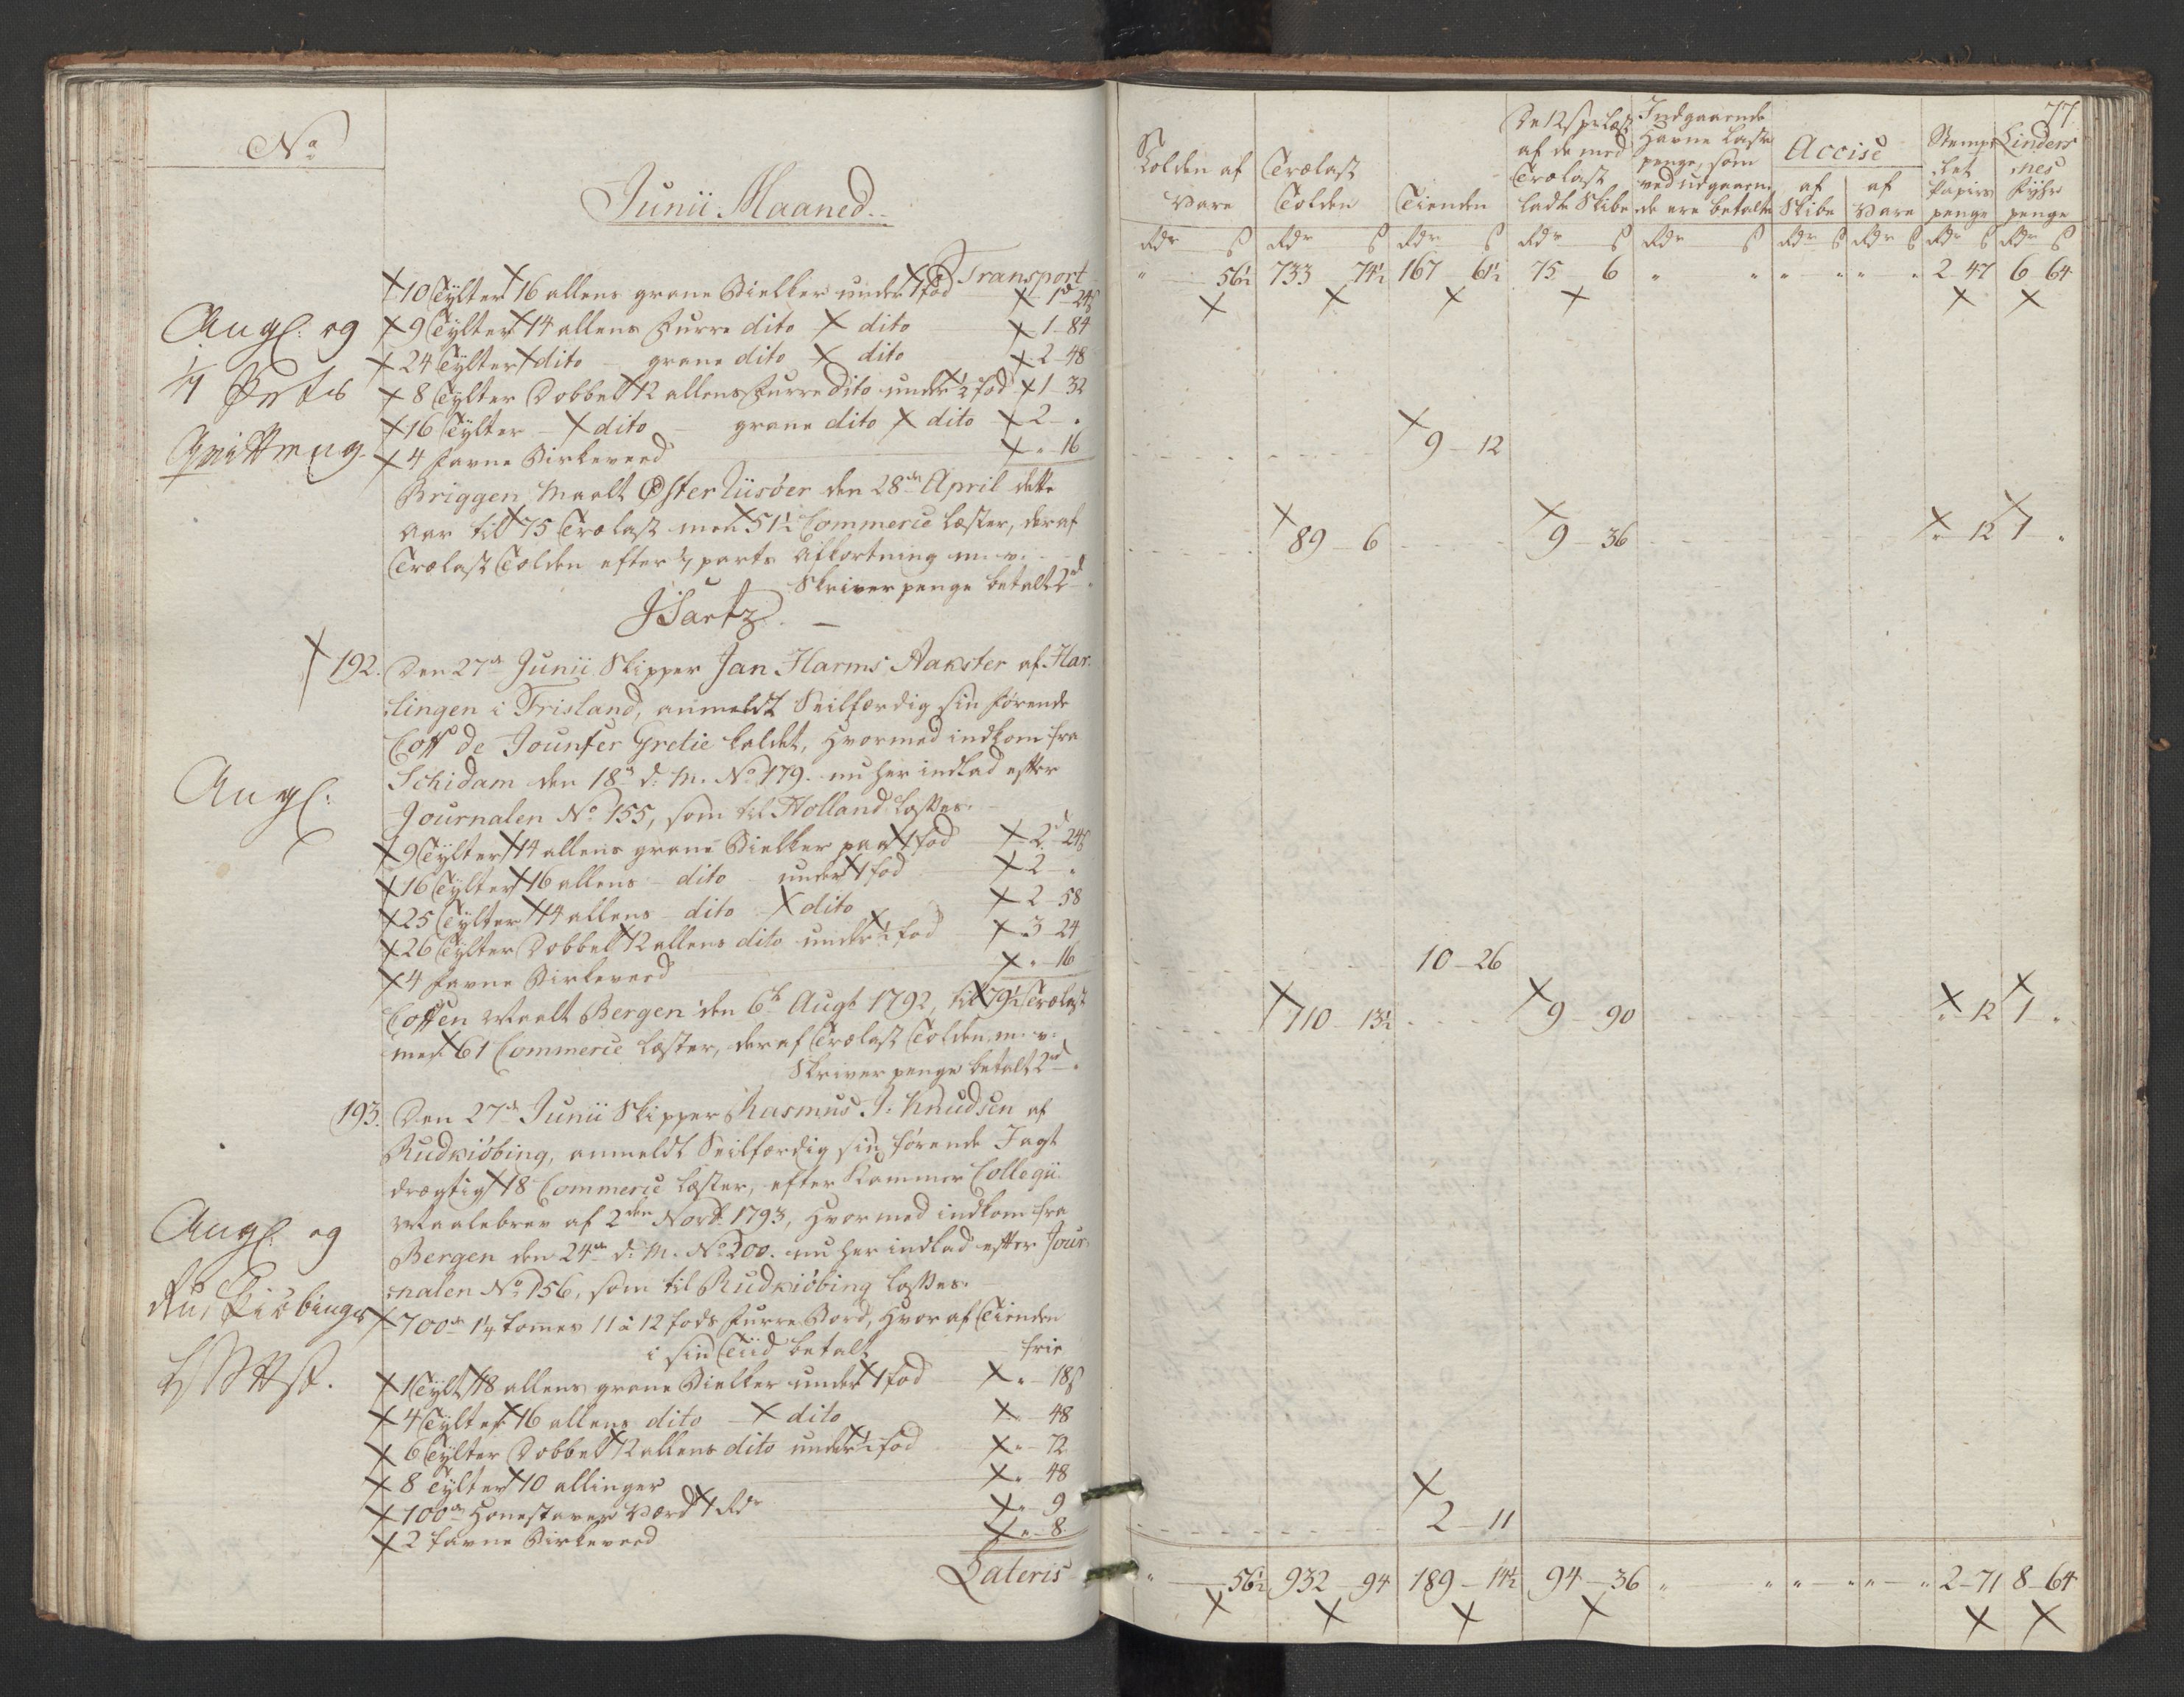 No
Junii Maaned
Transport
10 Tÿlter 16 allens grane Bielker under 1 fod 1 rd 24 s
Angl: og
9 Tÿlter 14 allens Furre dito dito 1 - 84
24 Tÿlter dito - grane dito dito 2 - 48
1/7 Parts
8 Tÿlter Dobbelt 12 allens Furre dito under 1/2 fod 1 - 32
16 Tÿlter - dito - grane dito dito 2 - "
Qvittering
4 favne Birkeveed " - 16
Briggen Maalt Øster Riisöer den 28de April dette
Aar til 75 Trælast men 51 1/2 Commerce læster, deraf
Trælast Tolden efter 1/7 parts Afkortning m: v:
Skriver penge betalt 2 rd "
J Sartz.
192. Den 27de Junii Skipper Jan Harms Aakster af Har-
lingen i Frisland, anmeldt Seilfærdig sin førende
Coff de Jounfer Gretie kaldet, hvormed indkom fra
Schidam den 18de d: M. No 179. nu her indlad efter
Angl:
Journalen No 155, som til Holland losses.
9 Tÿlter 14 allens grane Bielker paa 1 fod 2 rd 24 s
16 Tÿlter 16 allens - dito - under 1 fod 2 - "
25 Tÿlter 14 allens - dito - dito 2 - 58
26 Tÿlter Dobbelt 12 allens dito under 1/2 fod 3 - 24
4 favne Birkeveed " - 16
Coffen Maalt Bergen den 6te Augt 1792, til 79 1/2 Trælast
men 61 Commerce læster, deraf Trælast Tolden m: v:
Skriver penge betalt 2 rd "
193. Den 27de Junii Skipper Rasmus J: Knudsen af
Rudkiöbing, anmeldt Seilfærdig sin førende Jagt
drægtig 18 Commerce læster, efter Kammer Collegii
Maalebrev af 2den Novb. 1793, hvormed indkom fra
Angl: og
Bergen den 24de d: M. No 200. nu her indlad efter Jour-
nalen No 156, som til Rudkiöbing losses.
Rudkiöbings
700de 1 1/4 tommer 11 à 12 fods Furre Bord, hvoraf Tienden
i sin Tiid betalt frie
1 Tÿlt 18 allens grane Bielker under 1 fod " - 18 s
4 Tÿlter 16 allens dito - dito " - 48
6 Tÿlter Dobbelt 12 allens dito under 1/2 fod " - 72
8 Tÿlter 10 allinger " - 48
100de Honestaver værd 1 Rdr " - 9
2 favne Birkeveed " - 8
Lateris
77
Tolden af Vare
Trælast Tolden
Tienden
De 12 s pr Læst af de med Trælast ladte Skibe
Indgaaende Havne Læste penge, som ved udgaaende ere betalte
Accise
af Skibe
af Vare
Stempelet Papiirs penge
Lindersnes Fÿhr penge
Rdr s Rdr s Rdr s Rdr s Rdr s Rdr s Rdr s Rdr s Rdr s
" - 56 1/2 733 - 74 1/2 167 - 61 1/2 75 - 6 " " " - " " - " 2 - 47 6 - 64
9 - 12
89 - 6 9 - 36 " - 12 1 - "
10 - 26
110 - 13 1/2 9 - 90 " - 12 1 - "
2 - 11
" - 56 1/2 932 - 94 189 - 14 1/2 94 - 36 " " " - " " - " 2 - 71 8 - 64